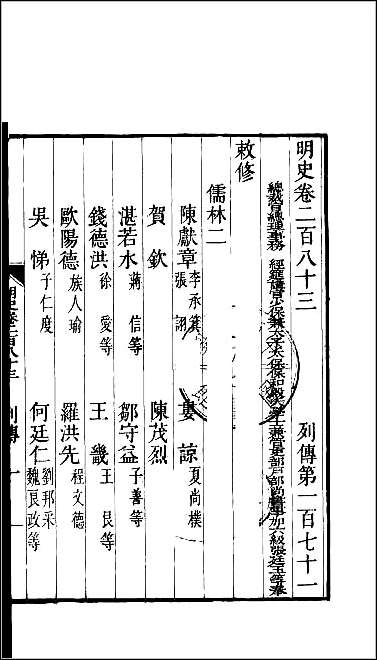 明史卷二百八十三 列傳第一百七十一
總裁官總理事務 經筵講官少保兼太子太保保和殿大學士兼管吏部戶部尚書事加六級張廷玉等奉
敕修
儒林二
陳獻章 李承箕 張詡 婁諒 夏尚樸
賀欽 陳茂烈
湛若水 蔣信等 鄒守益 子善等
錢德洪 徐愛等 王畿 王艮等
歐陽德 族人瑜 羅洪先 程文德
吳悌 子仁度 何廷仁 劉邦采 魏良政等
列傳